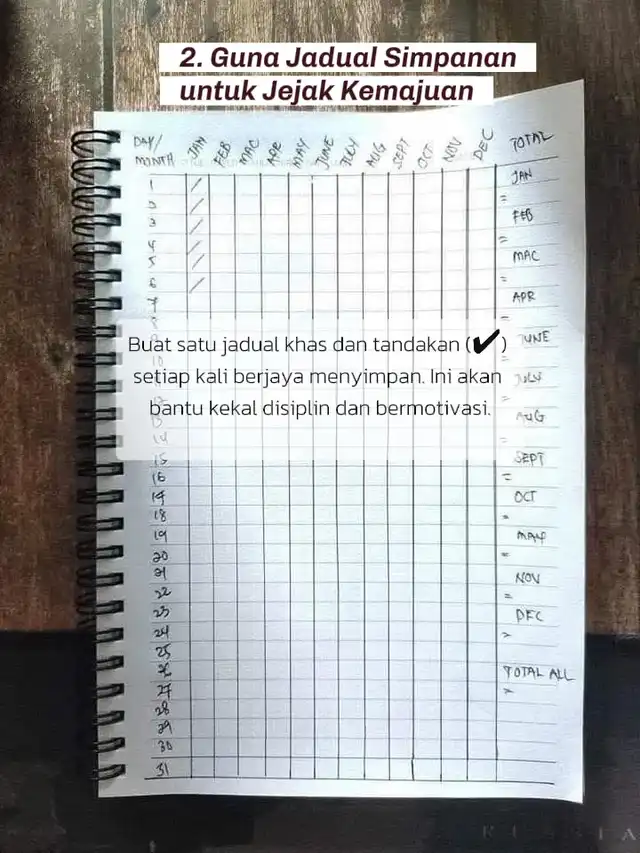 2. Guna Jadual Simpanan
untuk Jejak Kemajuan
DAY/
MONTH JAN FEB MAC APR MAY JUNE JULY AUG SEPT OCT NOV DEC TOTAL
1 / JAN
2 / =
3 / FEB
4 / =
5 / MAC
6 / =
7 APR
=
Buat satu jadual khas dan tandakan (✔) JUNE
=
setiap kali berjaya menyimpan. Ini akan JULY
=
bantu kekal disiplin dan bermotivasi. AUG
14 =
15 SEPT
16 =
17 OCT
18 =
19 MAY
20 =
21 NOV
22 =
23 DEC
24 =
25
26 TOTAL ALL
27 =
28
29
30
31